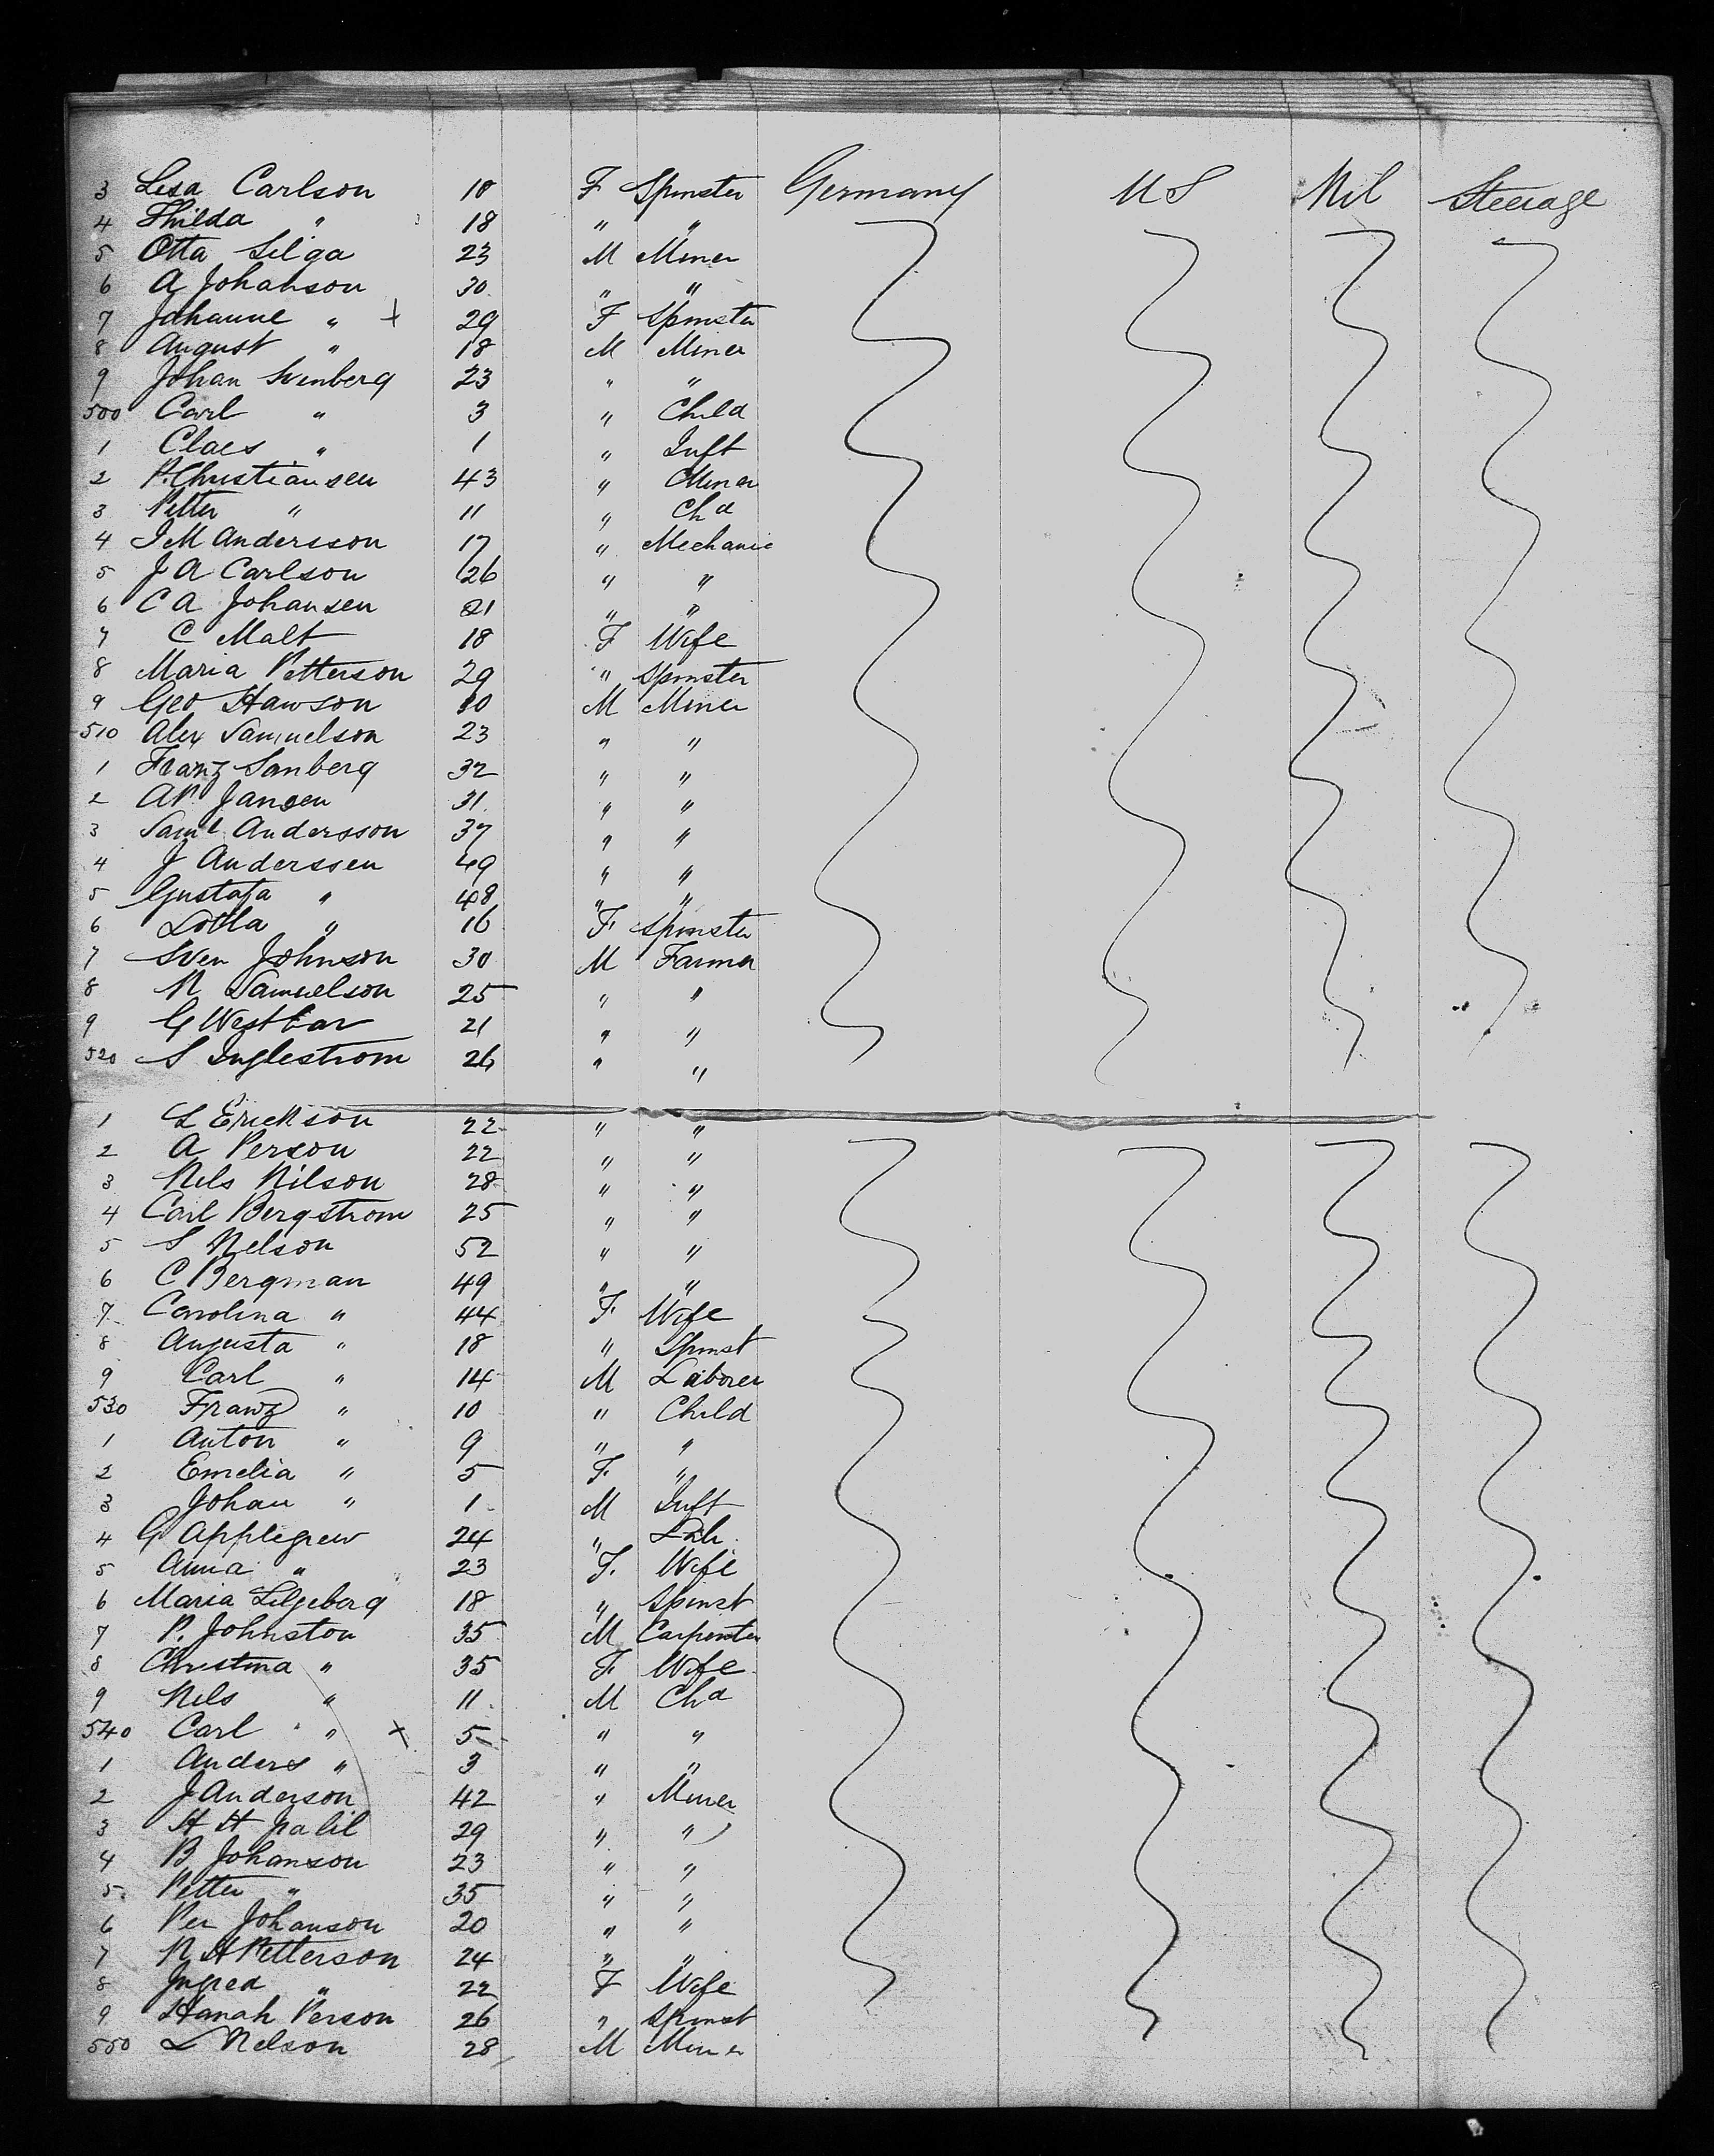 3 Lisa Carlson 18 F Spinster Germany U S Nil Steerage
4 Thilda " 18 " "
5 Otta Silga 23 M Miner
6 A Johanson 30 " "
7 Johanne " + 29 F Spinster
8 August " 18 M Miner
9 Johan Svenberg 23 " "
500 Carl " 3 " Child
1 Claes " 1 " Inft
2 P. Christiansen 43 " Miner
3 Petter " 11 " Chd
4 J M Andersson 17 " Mechanic
5 J A Carlson 26 " "
6 C A Johansen 21 " "
7 C Malt 18 F Wife
8 Maria Petterson 29 " Spinster
9 Geo Hawson M Miner
510 Alex Samuelson 23 " "
1 Franz Sanberg 32 " "
2 A P Jansen 31 " "
3 Saml Andersson 37 " "
4 J Anderssen 49 " "
5 Gustafa " 48 " "
6 Lotta " 16 F. Spinster
7 Sven Johnson 30 M Farmer
8 N Samuelson 25 " "
9 G Westbar 21 " "
520 S Inglestrom 26 " "
1 L Erickson 22 " "
2 A Person 22 " "
3 Nels Nilson 28 " "
4 Carl Bergstrom 25 " "
5 S Nelson 52 " "
6 C Bergman 49 " "
7 Carolina " 44 F. Wife
8 Augusta " 18 " Spinst
9 Carl " 14 M Laborer
530 Franz " 10 " Child
1 Anton " 9 " "
2 Emelia " 5 F. "
3 Johan " 1 M Inft
4 G Applegrew 24 " Lab.
5 Anna " 23 F. Wife
6 Maria Liljeberg 18 " Spinst
7 P. Johnston 35 M Carpenter
8 Christina " 35 F. Wife
9 Nils " 11 M Chd
540 Carl " + 5 " "
1 Anders " 3 " "
2 J Anderson 42 " Miner
3 H H 29 " "
4 B Johanson 23 " "
5 Petter " 35 " "
6 Per Johanson 20 " "
7 N H Petterson 24 " "
8 Ingred " 22 F Wife
9 Hanah Person 26 " Spinst
550 L Nelson 28 M Miner